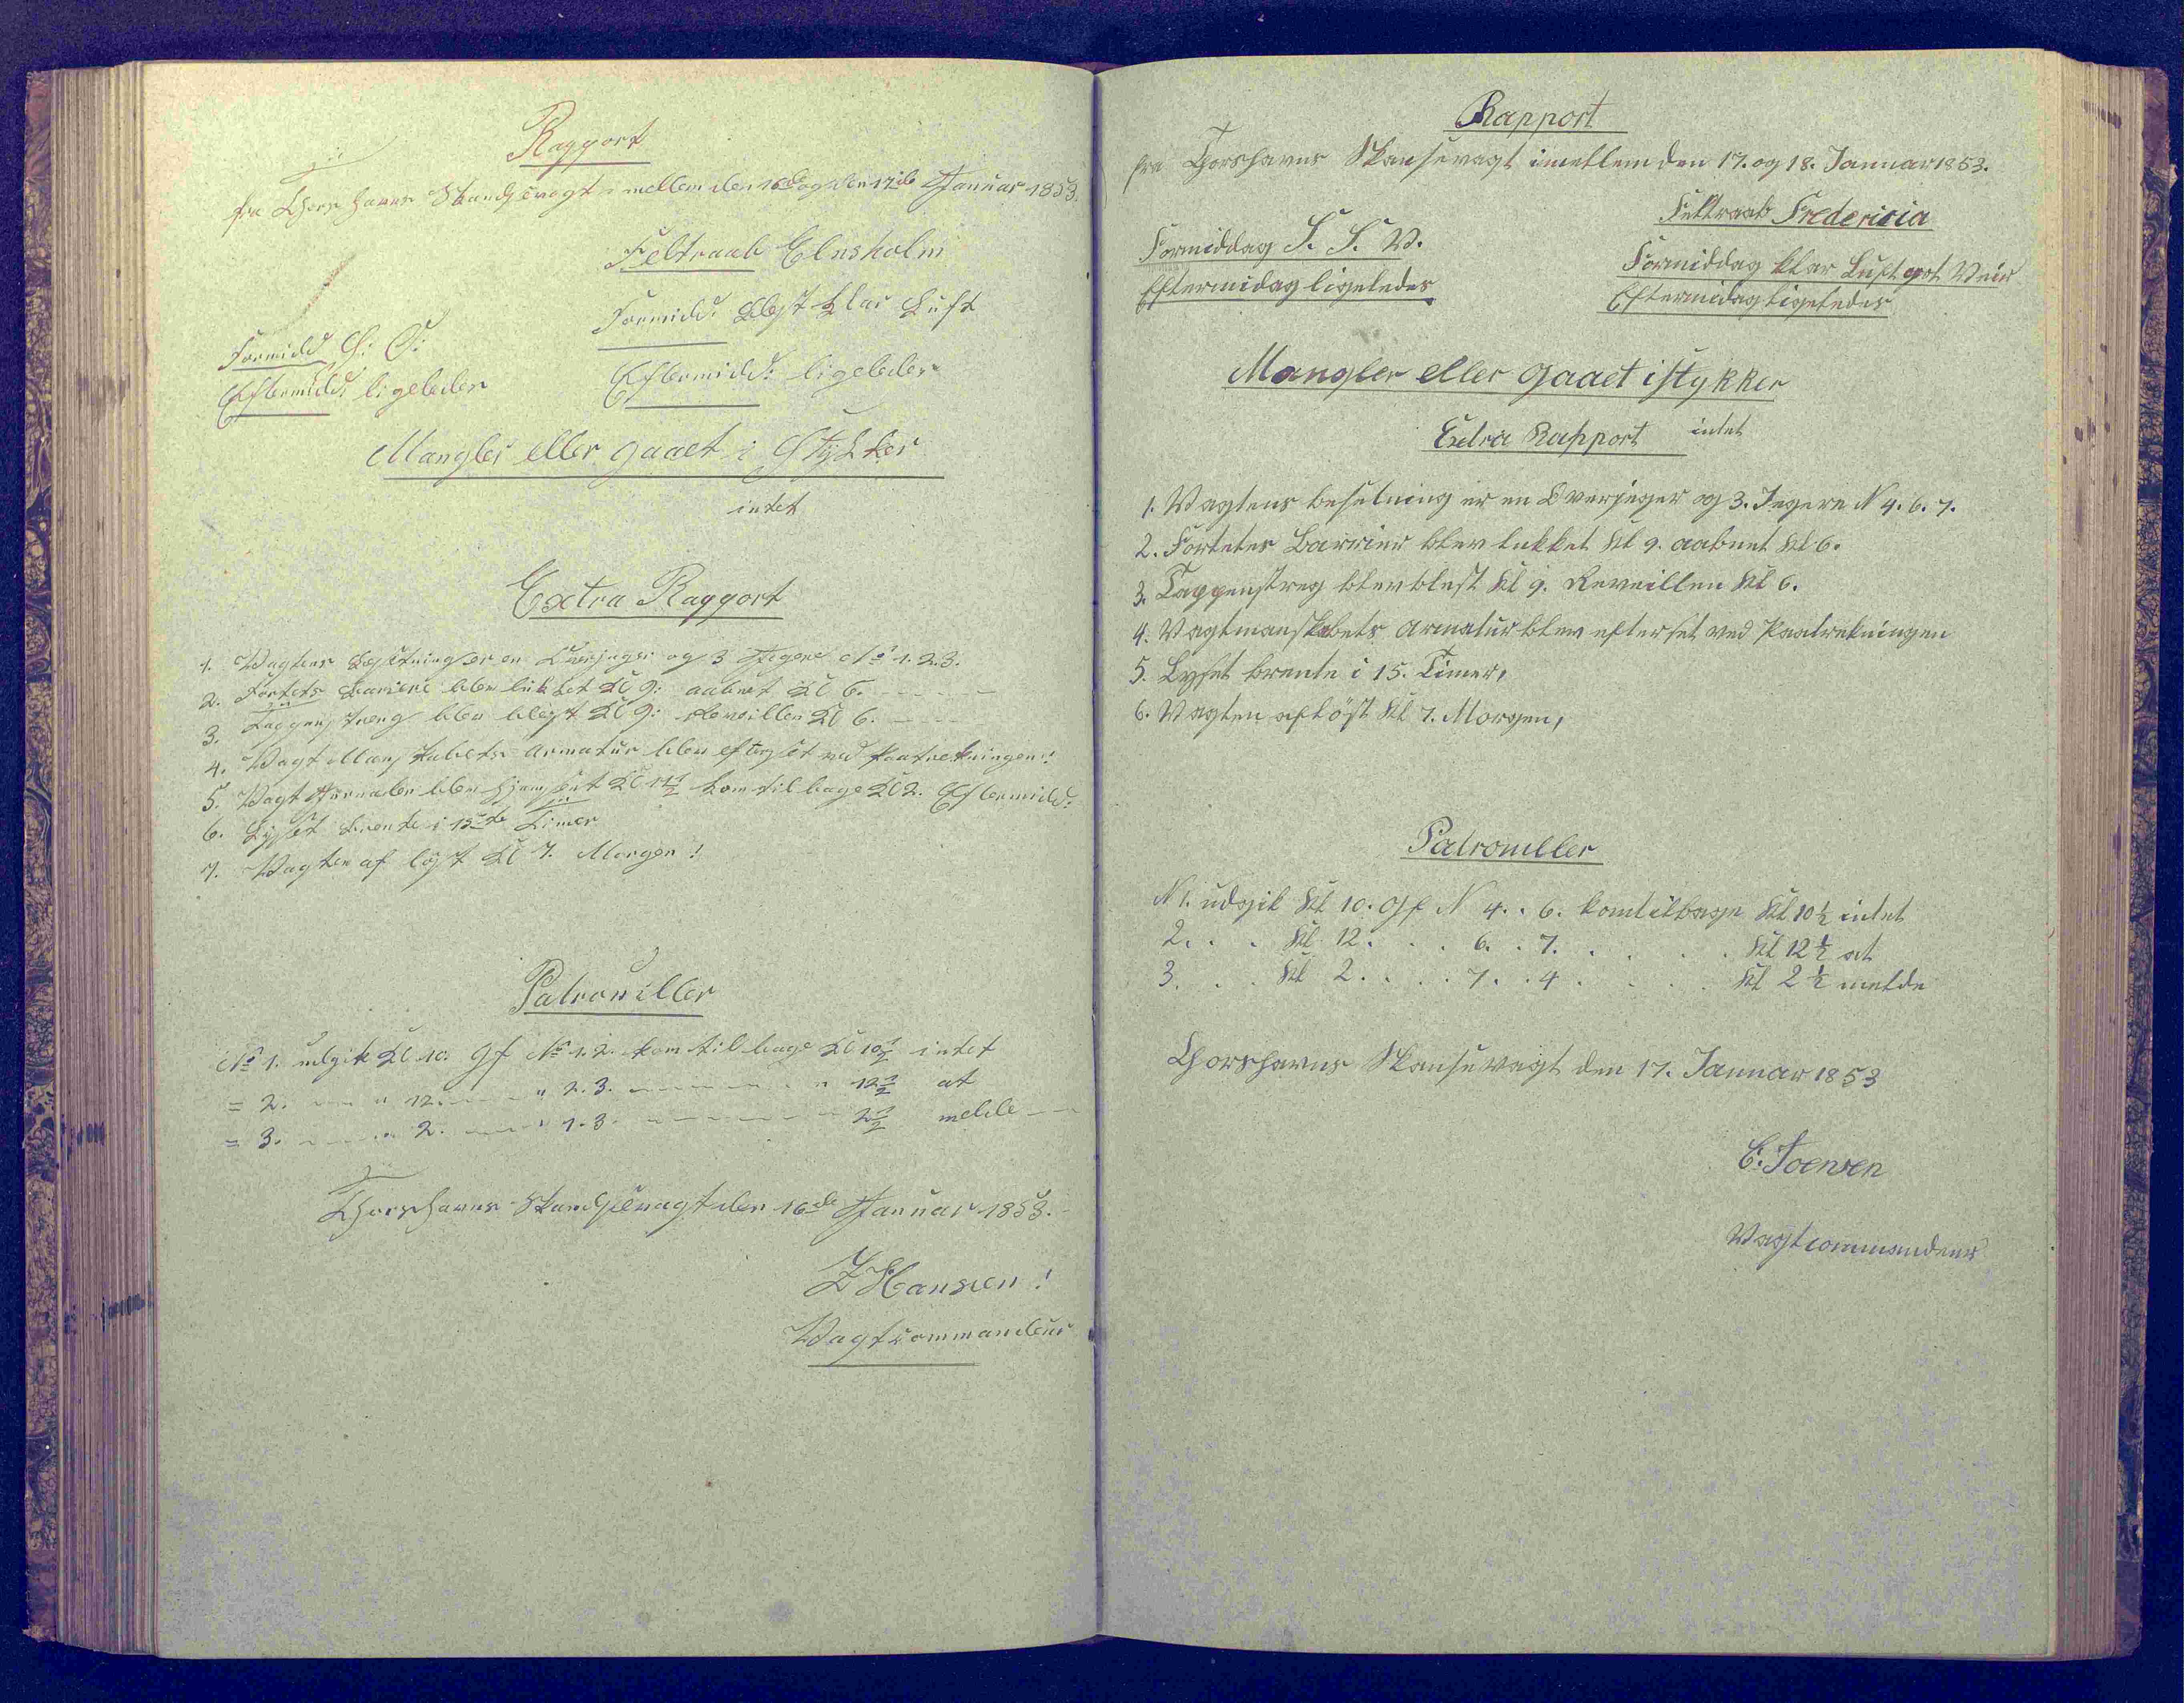 Rapport
fra Thorshavns Skandsevagt imellem den 16de og den 17de Januar 1853.
Feltraab Elnsholm
Formidd. Blæst klar Luft
Formidd
Eftermidd: ligeledes
Eftermidd: ligeledes
Mangler eller gaaet i Stykker
intet
Extra Rapport
1. Vagtens Besetning er en Overjæger og 3 Jegere No 1. 2. 3.
2. Fortets Bariere blev lukket Kl 9: aabnet Kl 6.
3. Tappenstreng blev blest Kl 9: Reveillen Kl 6.
4. Vagt Manskabets Armatur blev efterset ved Paatrekningen:
5. Vagt Jurnalen blev hjemsent Kl 11½ kom tilbage Kl 2. Eftermidd:
6. Lyset brente i 15de Timer
7. Vagten afløst Kl 7. Morgen!
Patrouiller
No 1. udgik Kl 10. Gf No 1. 2. kom tilbage Kl 10½ intet
= 2. " 12. " 2. 3. " 12½ at
= 3. " 2. " 1. 3. 2½ melde
Thorshavns Skandsevagt den 16de Januar 1853.
Hansen!
Vagtcommandeur
Rapport
fra Thorshavns Skansevagt imellem den 17. og 18. Januar 1853.
Feltraab Fredericia
Formiddag S. S. V.
Formiddag klar Luft got Veir
Eftermidag ligeledes
Eftermidag ligeledes
Mangler eller gaaet istykker
Extra Rapport intet
1. Vagtens besetning er en Overjeger og 3. Jegere N 4. 6. 7.
2. Fortetes Barrier blev lukket Kl 9. aabnet Kl 6.
3. Tappenstreg blev blest Kl 9. Reveillen Kl 6.
4. Vagtmanskabets Armatur blev efterset ved Paatrekningen
5. Lyset brente i 15. Timer,
6. Vagten afløst Kl 7. Morgen,
Patrouiller
N 1. udgik Kl 10. Gf N 4. . 6. kom tilbage Kl 10½ intet
2. . . Kl 12. . . 6. . 7. . . . . Kl 12½ at
3. . . Kl 2. . . . 7. . 4 . . . . Kl 2½ melde
Thorshavns Skansevagt den 17. Januar 1853
Vagtcommandeur